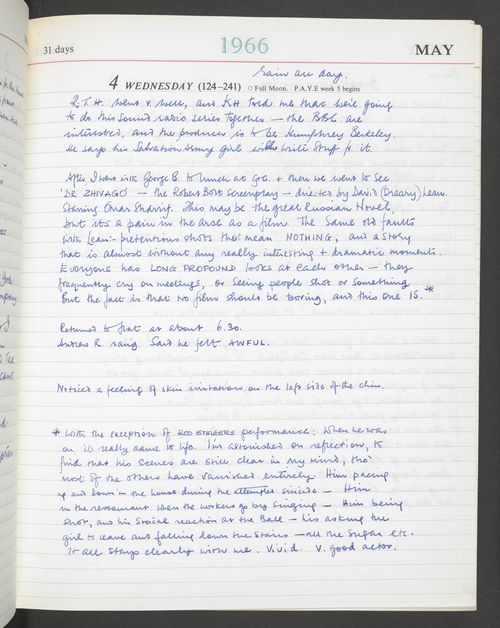 31 days
1966
MAY
rain all day.
4 WEDNESDAY (124–241) ○ Full Moon. P.A.Y.E week 5 begins
R.T.H. went v. well, and KH told me that we're going
to do this sound radio series together – the BBC are
interested, and the producer is to be Humphrey Berkeley.
He says his Salvation Army girl will write stuff for it.
After I went with George B. to lunch at G&C. + then we went to see
'DR. ZHIVAGO' – the Robert Bolt screenplay – directed by David (Dreary) Lean.
Starring Omar Sharif. This may be the great Russian Novel,
but it's a pain in the arse as a film. The same old faults
with Lean:- pretentious shots that mean NOTHING, and a story
that is almost without any really interesting + dramatic moments.
Everyone has LONG PROFOUND looks at each other – they
frequently cry on meetings, or seeing people shot or something
But the fact is that no films should be boring, and this one IS. *
Returned to flat at about 6.30.
Andrew R. rang. Said he felt AWFUL.
Noticed a feeling of skin irritation on the left side of the chin.
* With the exception of ROD STEIGERS performance: when he was
on, it really came to life. I'm astonished on reflection, to
find that his scenes are still clear in my mind, tho'
most of the others have vanished entirely. Him pacing
up and down in the house during the attempted suicide – Him
in the restaurant when the workers go by singing – Him being
shot, and his stoical reaction at the Ball – his asking the
girl to leave and falling down the stairs – all the sugar etc.
It all stays clearly with me. Vivid. V. good actor.